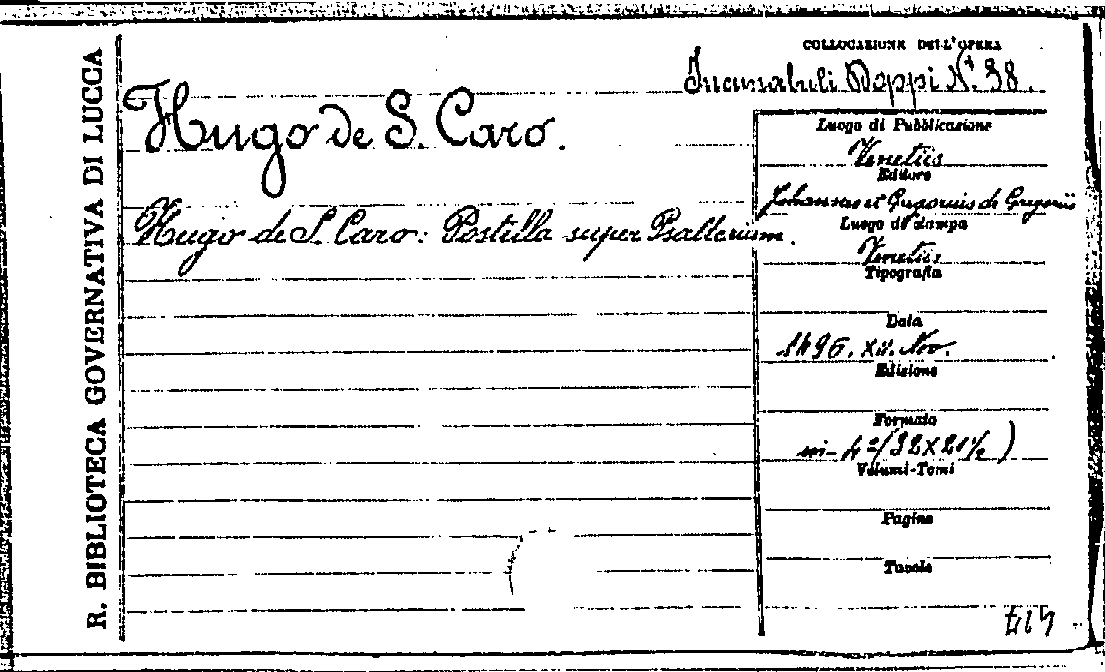 R. BIBLIOTECA GOVERNATIVA DI LUCCA
COLLOCAZIONE DELL'OPERA
Incunabuli Doppi N. 38.
Hugo de S. Caro.
Hugo de S. Caro: Postilla super Psalterium.
Luogo di Pubblicazione
Venetiis
Editore
Johannes et Gregorius de Gregoriis
Luogo di stampa
Venetiis
Tipografia
Data
1496. XII. Nov.
Edizione
Formato
in-4º (32X21½)
Volumi-Tomi
Pagine
Tavole